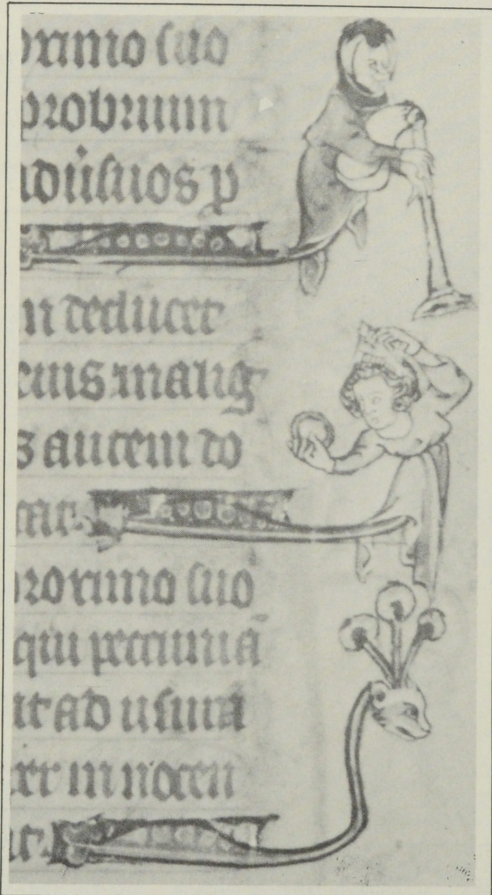 oximo suo
probrium
adũsuos p
n deducet
eius malig
s autem do
cat.
proximo suo
qui pecuniā
it ad usura
er innocen